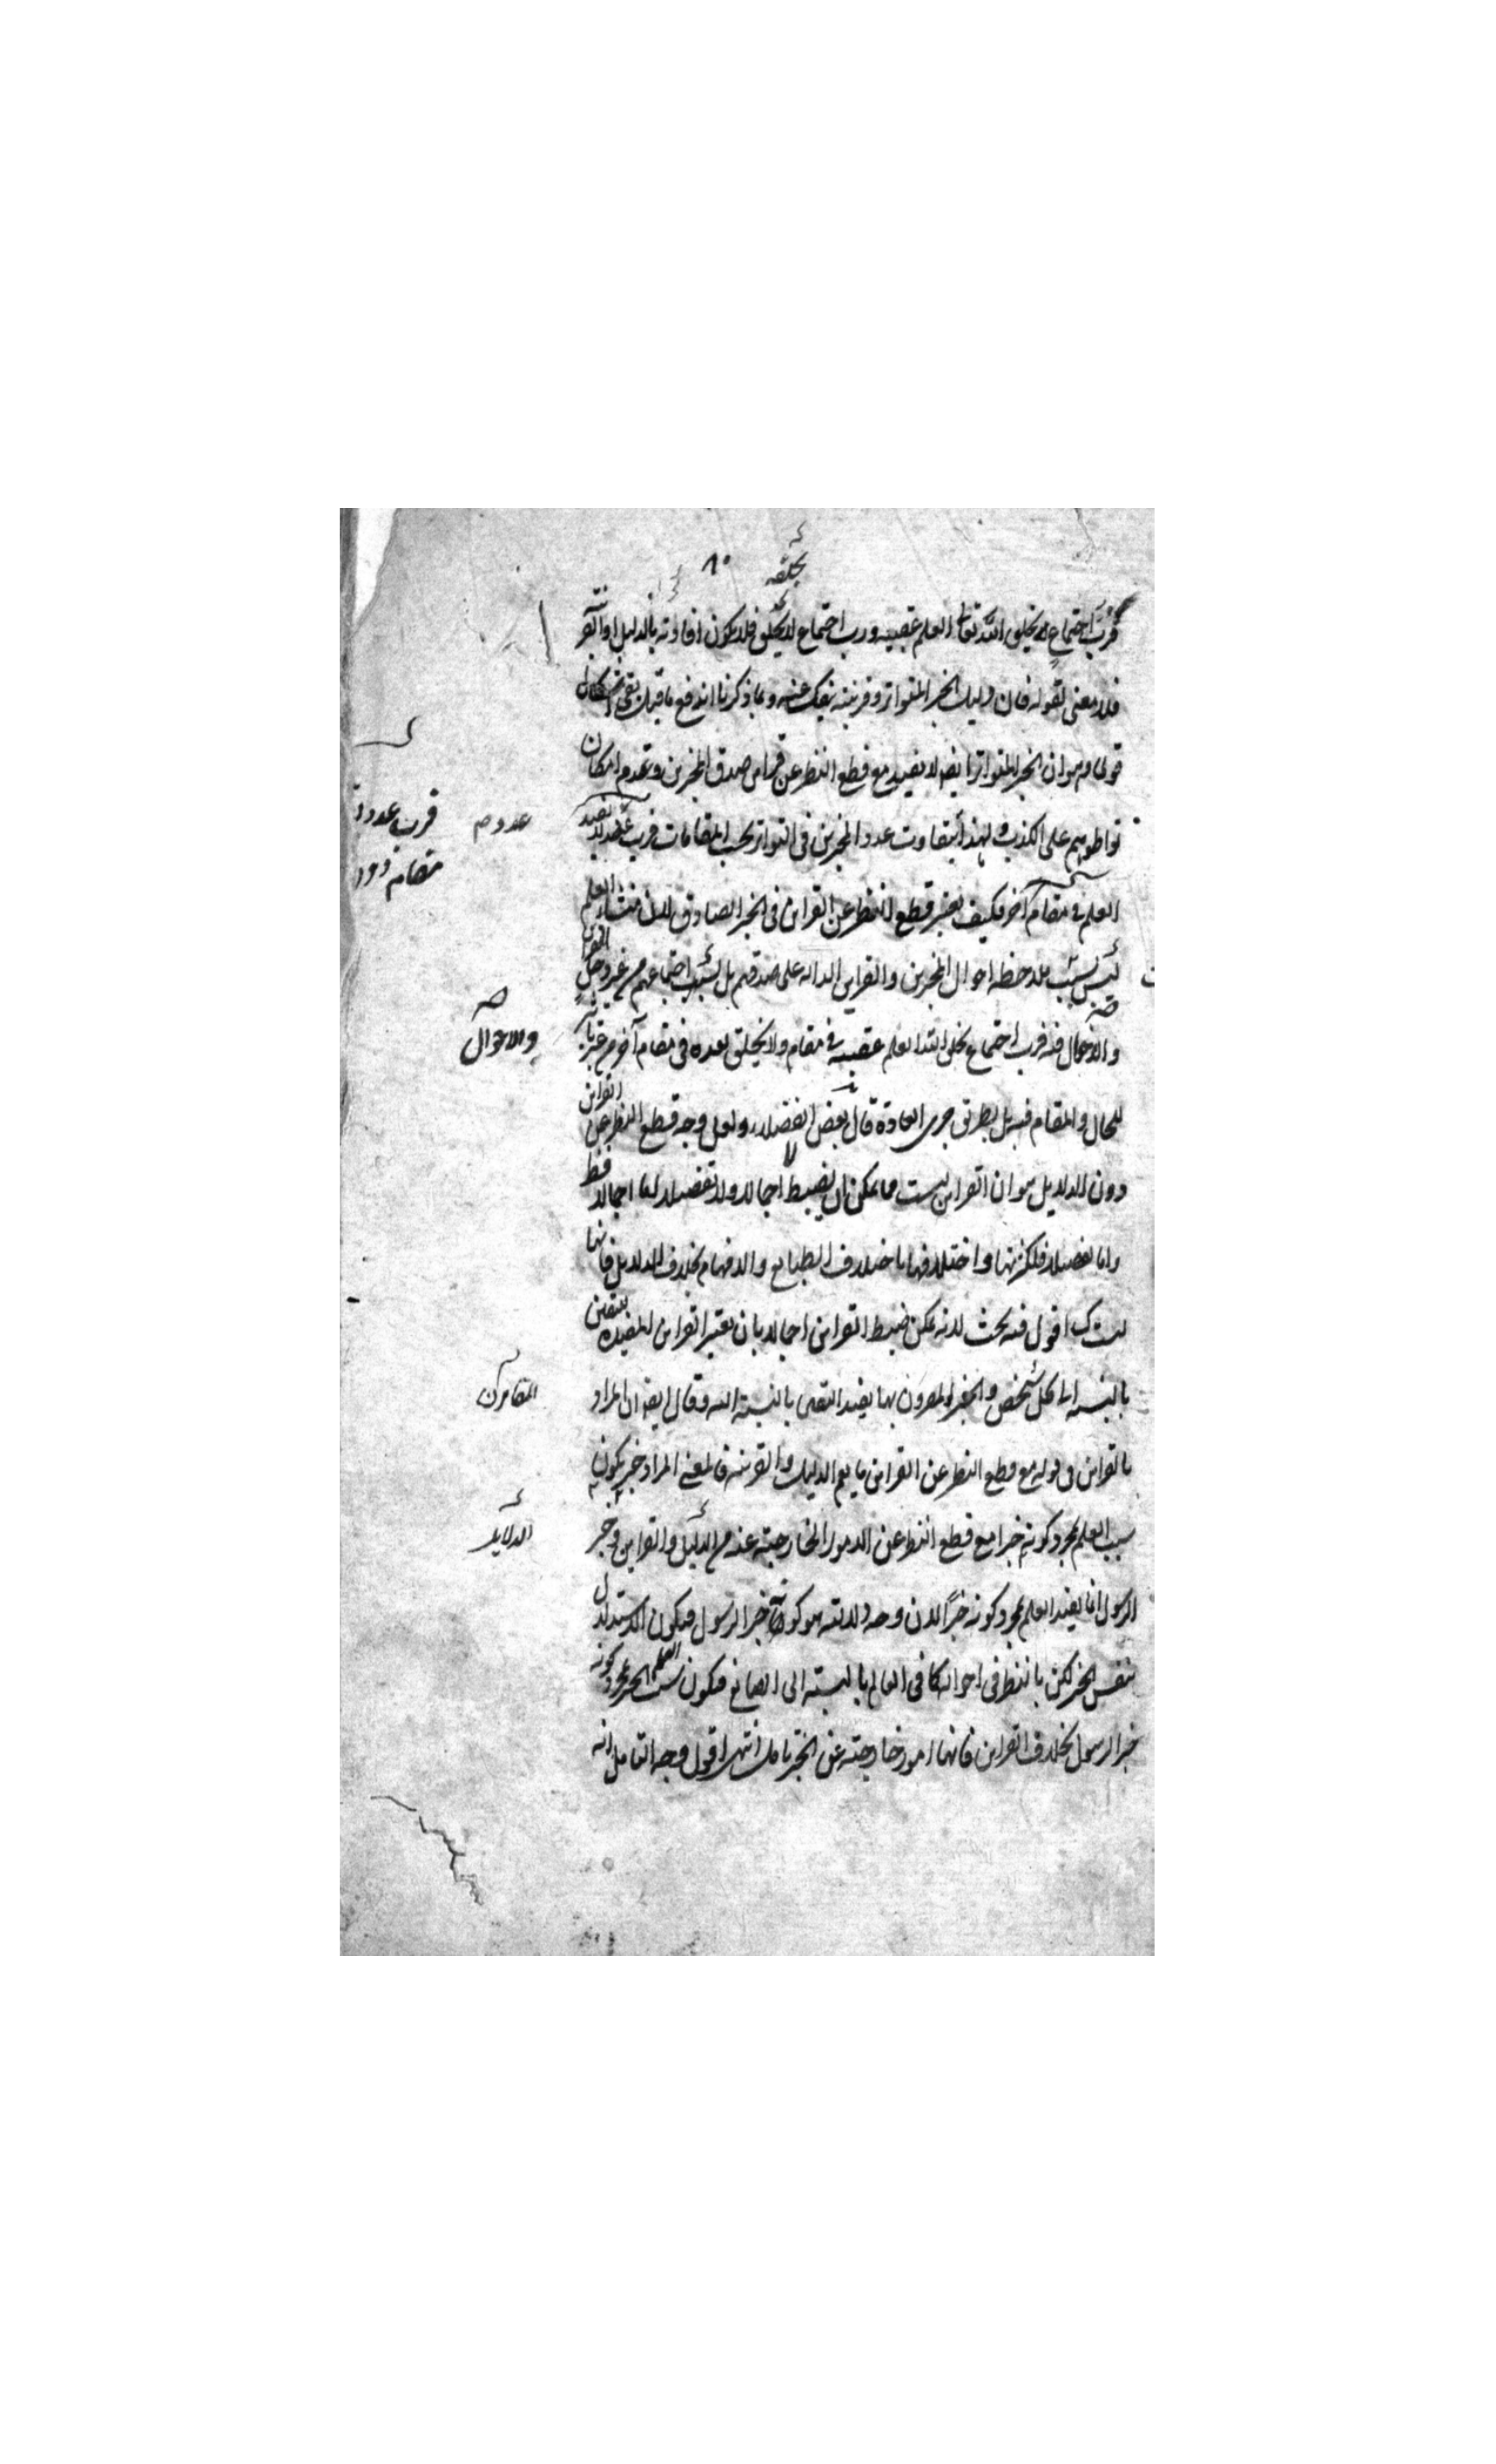 يخلقه
٨٠
فرب اجتماع يخلق الله تعالى العلم عقيبه ورب اجتماع لا يخلق فلا يكون افادته بالدليل او القرينة
فلا معنى لقوله فان دليل الخبر المتواتر وقرينته ينفك عنه وبما ذكرنا اندفع ما قيل بقى
قوى وهو ان الخبر المتواتر ايضا لا يفيد مع قطع النظر عن قراين صدق المخبرين وعدم امكان
تواطؤهم على الكذب ولهذا يتفاوت عدد المخبرين في التواتر بحسب المقامات فرب عدد لا يفيد
العلم في مقام آخر فكيف يعتبر قطع النظر عن القراين في الخبر الصادق لان منشاء العلم
ليس بسبب ملاحظة احوال المخبرين والقراين الدالة على صدقهم بل بسبب اجتماعهم من غير دخل القراين
والاحوال فيه فرب اجتماع يخلق الله العلم عقيبه في مقام ولا يخلق بعده في مقام آخر من غير تاثير
للحال والمقام فيه بل بطريق جرى العادة قال بعض الفضلاء ولعل وجه قطع النظر عن القراين
دون الدلايل هو ان القراين ليست مما يمكن ان يضبط اجمالا ولا تفصيلا اما اجمالا فظ
واما تفصيلا فلكثرتها واختلافها باختلاف الطبايع والافهام بخلاف الدلايل فانها
ليست كك اقول فيه بحث لانه يمكن ضبط القراين اجمالا بان يعتبر القراين المفيدة لليقين
بالنسبة الى كل شخص والخبر المقرون بها يفيد اليقين بالنسبة اليه وقال ايضا ان المراد
بالقراين في قوله مع قطع النظر عن القراين ما يعم الدليل والقرينة فالمعنى المراد خبر يكون
سبب العلم بمجرد كونه خبرا مع قطع النظر عن الامور الخارجة عنه من الدليل والقراين وخبر
الرسول انما يفيد العلم بمجرد كونه خبرا لان وجه دلالته هو كونه خبر الرسول فيكون الاستدلال
بنفس الخبر لكن بالنظر في احواله كما في العالم بالنسبة الى الصانع فيكون سبب العلم الخبر بمجرد كونه
خبر الرسول بخلاف القراين فانها امور خارجة عن الخبر تامل انتهى اقول وجه التامل انه
عدد صم
فرب عدد
مقام دون
والاحوال
المقامرين
الدلايل